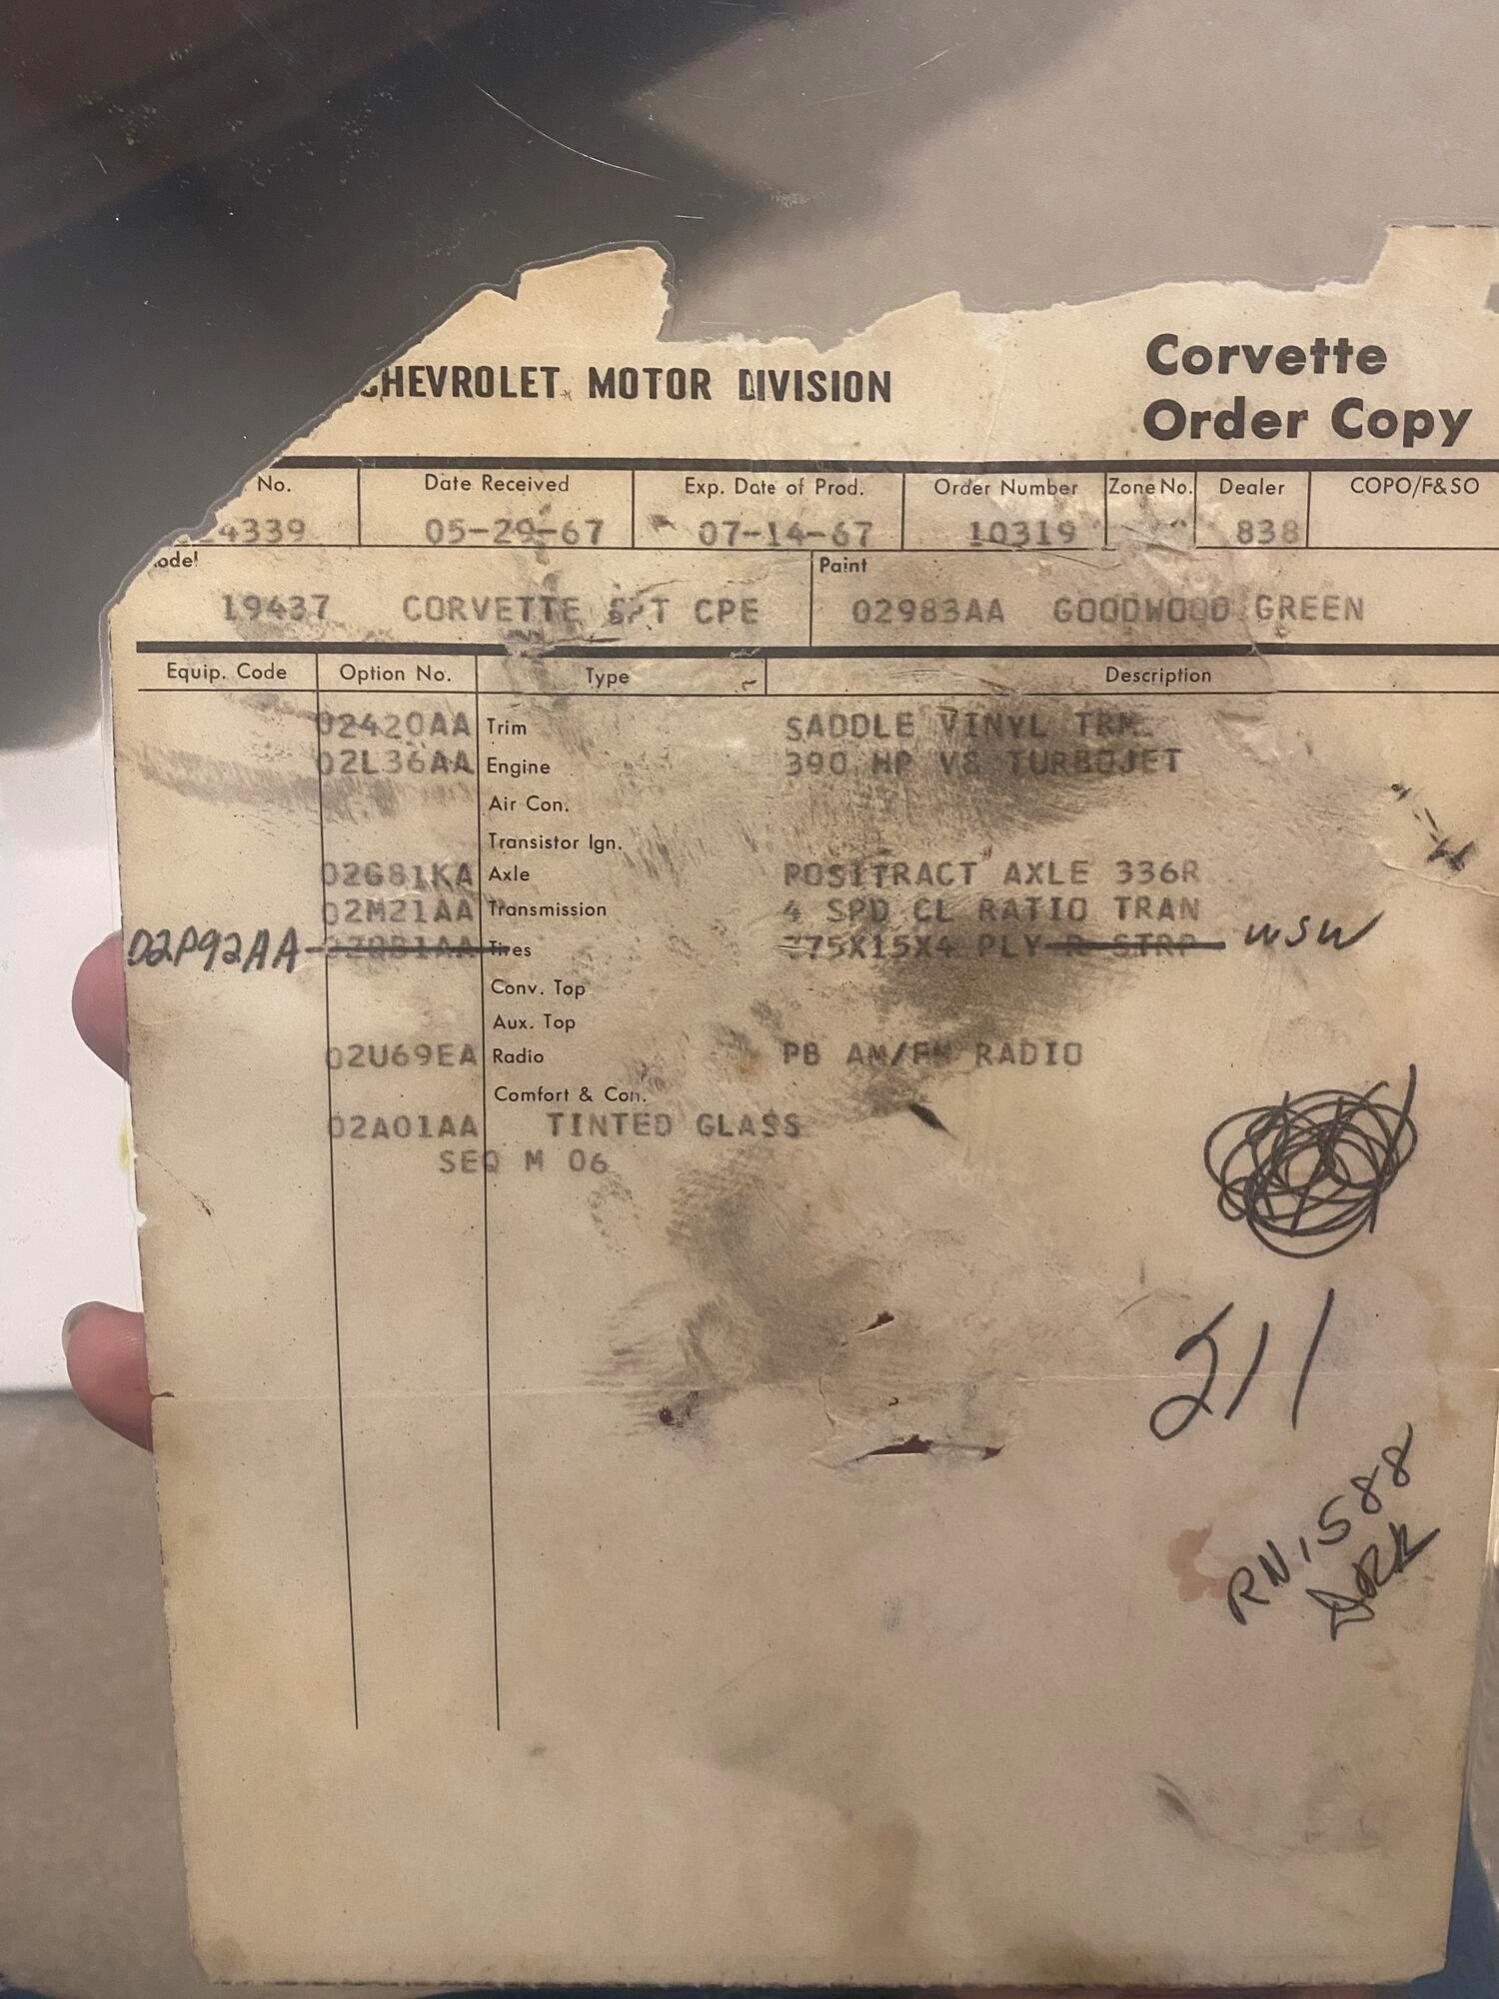 CHEVROLET MOTOR DIVISION
Corvette
Order Copy
No. Date Received Exp. Date of Prod. Order Number Zone No. Dealer COPO/F&SO
4339 05-29-67 07-14-67 10319 838
odel Paint
19437 CORVETTE SPT CPE 02983AA GOODWOOD GREEN
Equip. Code Option No. Type Description
02420AA Trim SADDLE VINYL TRM
02L36AA Engine 390 HP V8 TURBOJET
Air Con.
Transistor Ign.
02G81KA Axle POSITRACT AXLE 336R
02M21AA Transmission 4 SPD CL RATIO TRAN
02P92AA 02QB1AA Tires 775X15X4 PLY R STRP WSW
Conv. Top
Aux. Top
02U69EA Radio PB AM/FM RADIO
Comfort & Con.
02A01AA TINTED GLASS
SEQ M 06
211
RN1588
DRK